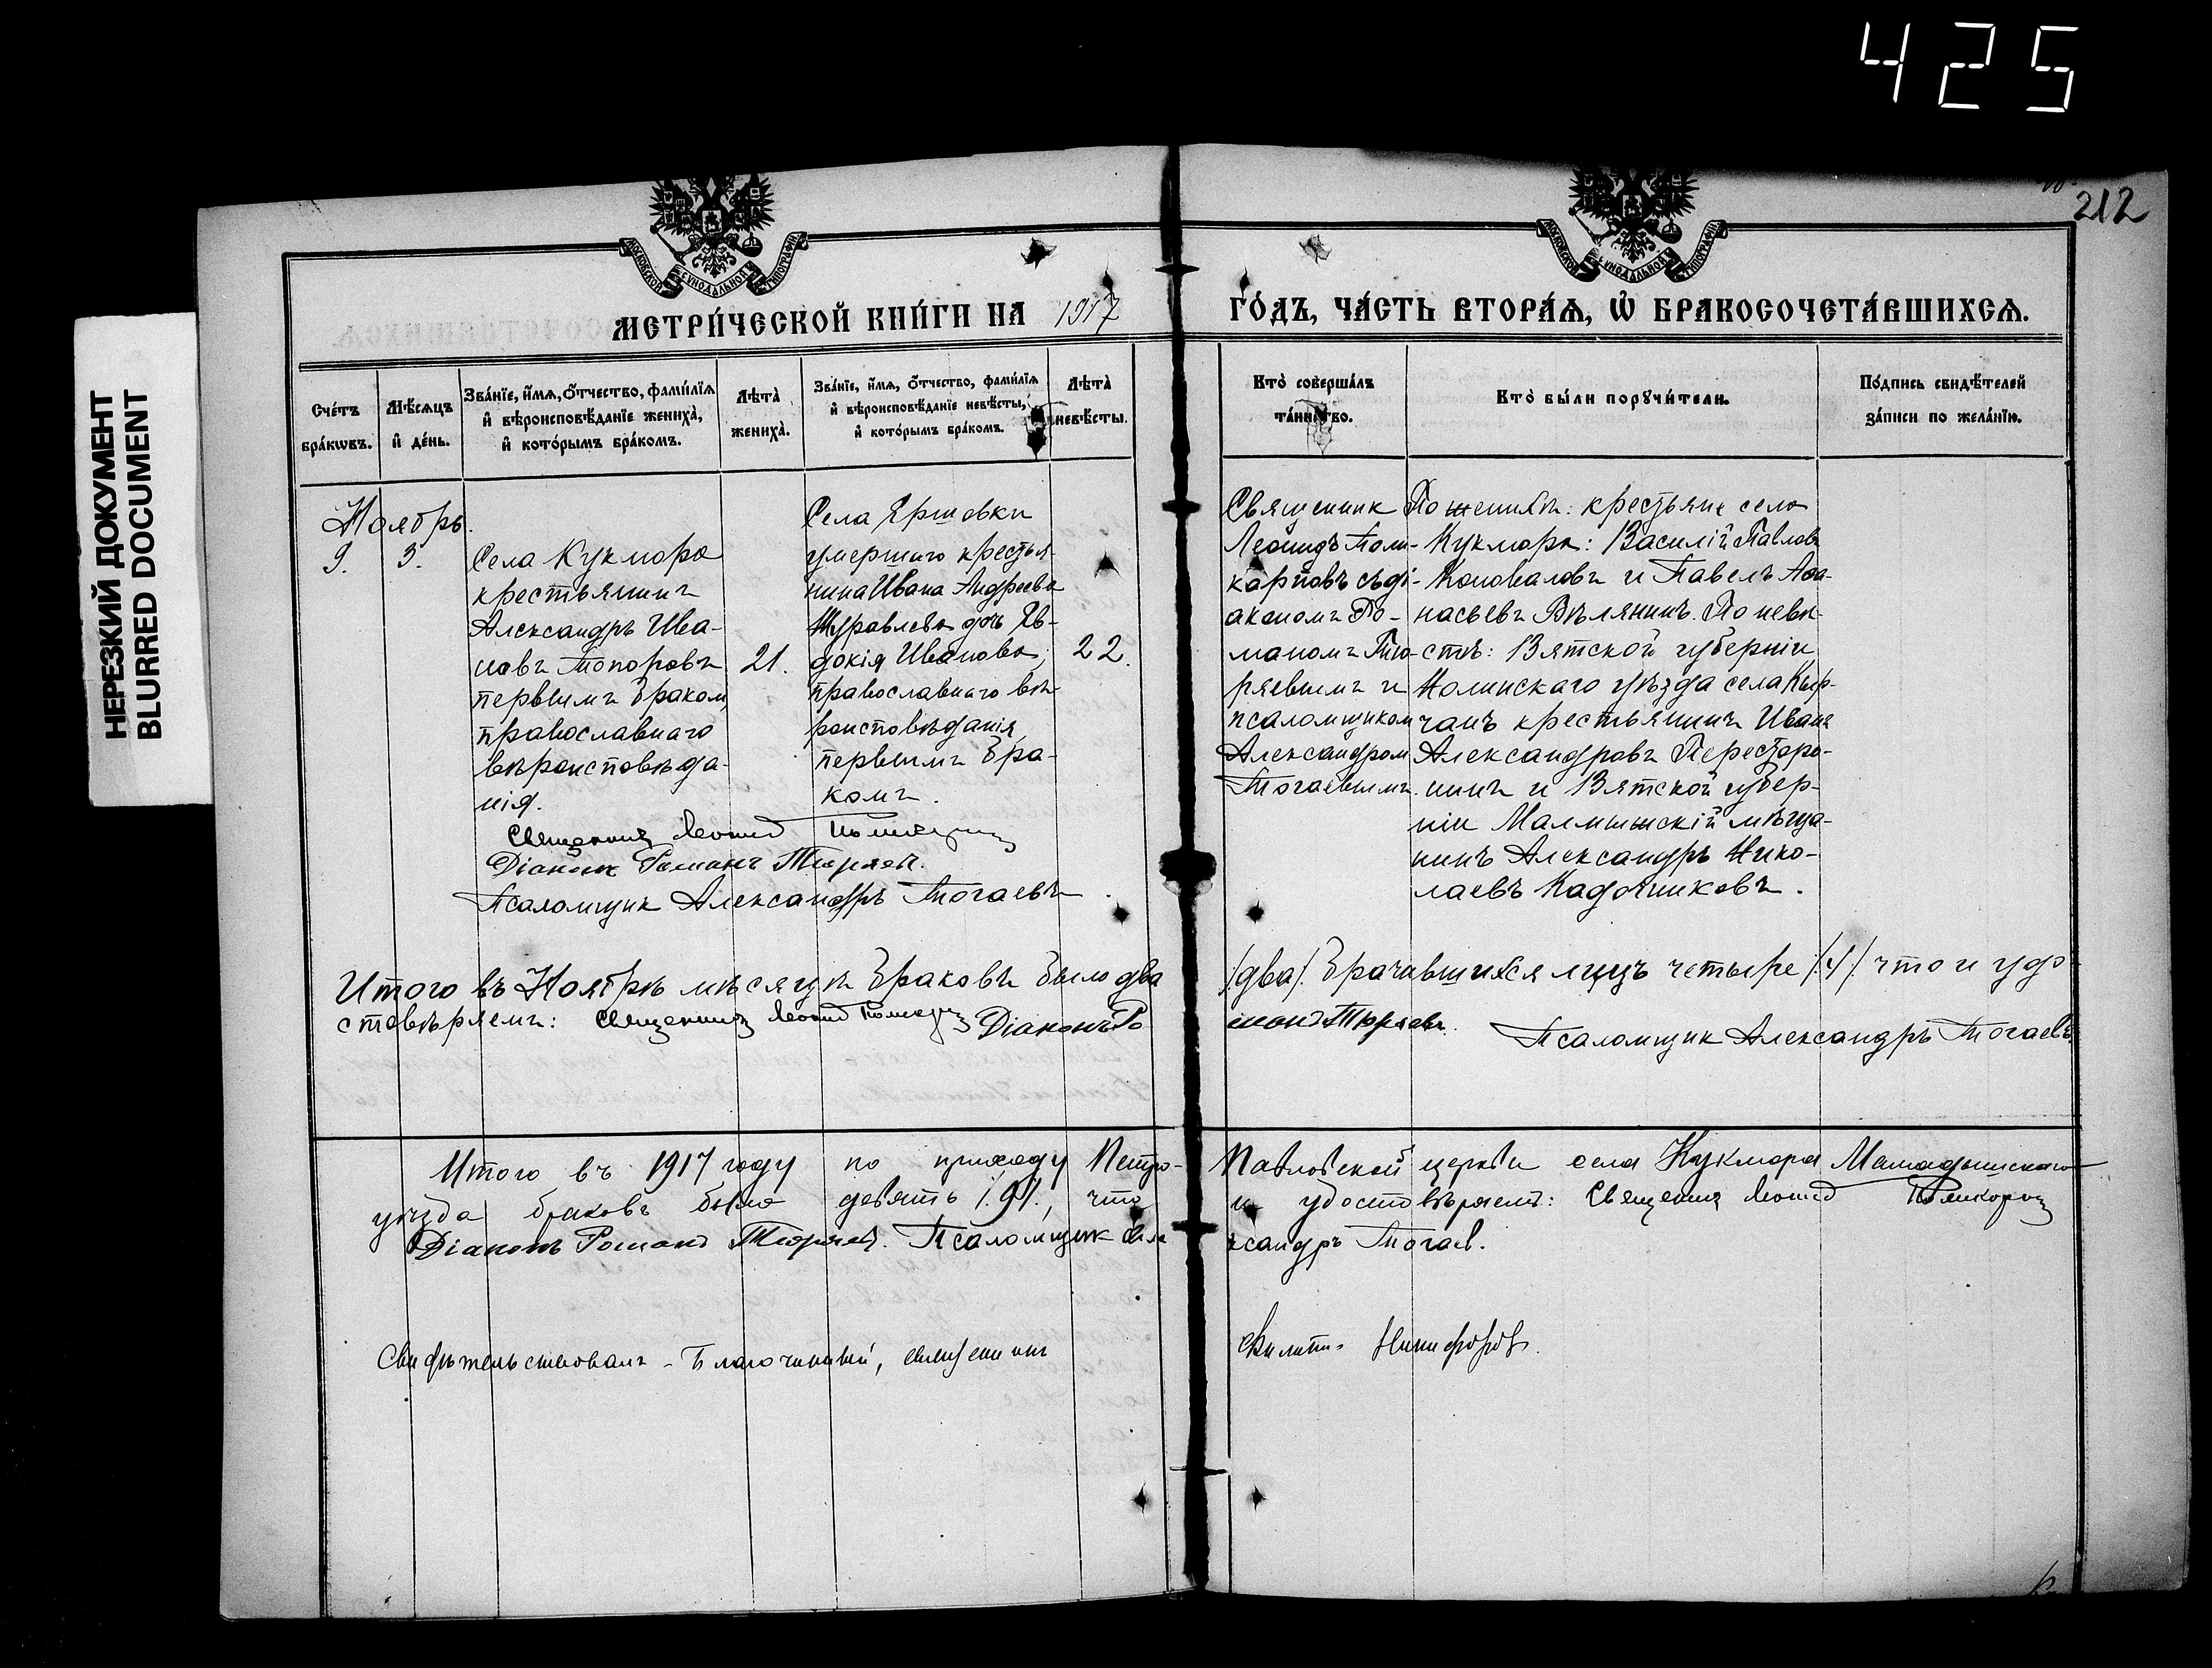 425
212
НЕРЕЗКИЙ ДОКУМЕНТ
BLURRED DOCUMENT
МОСКОВСКОЙ СѴНОДАЛЬНОЙ ТИПОГРАФІИ
МОСКОВСКОЙ СѴНОДАЛЬНОЙ ТИПОГРАФІИ
МЕТРИ́ЧЕСКОЙ КНИ́ГИ НА 1917
ГО́ДЪ, ЧА́СТЬ ВТОРА́Ѧ, Ѡ҆ БРАКОСОЧЕТА́ВШИХСѦ.
Сче́тъ
бра́кѡвъ.
Мѣ́сѧцъ
и҆ де́нь.
Зва́нїе, и҆́мѧ, ѻ҆́тчество, фами́лїѧ
и҆ вѣроисповѣ́данїе жениха̀,
и҆ кото́рымъ бра́комъ.
Лѣта̀
жениха̀.
Зва́нїе, и҆́мѧ, ѻ҆́тчество, фами́лїѧ
и҆ вѣроисповѣ́данїе невѣ́сты,
и҆ кото́рымъ бра́комъ.
Лѣта̀
невѣ́сты.
Кто̀ соверша́лъ
та́инство.
Кто̀ бы́ли порꙋчи́тели.
По́дпись свидѣ́телей
за́писи по жела́нїю.
Ноябрь.
9.
3.
Села Кукмора
крестьянинъ
Александръ Ива-
новъ Топоровъ
первымъ бракомъ,
православнаго
вѣроисповѣда-
нія.
21.
Села Ершовки
умершаго крестья-
нина Ивана Андреева
Журавлева дочь Ев-
докія Иванова,
православнаго вѣ-
роисповѣданія,
первымъ бра-
комъ.
22.
Священник
Леонидъ Поли-
карповъ съ ді-
акономъ Ро-
маномъ Тю-
ряевымъ и
псаломщиком
Александром
Тогаевымъ.
По женихѣ: крестьяне села
Кукмора: Василій Павловъ
Коновалов и Павелъ Аѳа-
насьевъ Вѣлянинъ. По невѣ-
стѣ: Вятской губерніи
Нолинскаго уѣзда села Кыр-
чанъ крестьянинъ Иванъ
Александровъ Пересторо-
нинъ и Вятской губер-
ніи Малмыжскій мѣща-
нинъ Александръ Нико-
лаевъ Кадочниковъ.
Священникъ Леонид Поликарповъ
Діаконъ Романъ Тюряевъ.
Псаломщик Александръ Тогаевъ
Итого въ Ноябрѣ мѣсяцѣ браковъ было два /два/. Брачившихся лицъ четыре /4/ что и удо-
стовѣряемъ: Священникъ Леонид Поликарповъ Діаконъ Романъ Тюряевъ. Псаломщик Александръ Тогаевъ
Итого въ 1917 году по приходу Петро-Павловской церкви села Кукмора Мамадышскаго
уѣзда браковъ было девять /9/, что и удостовѣряемъ: Священник Леонид Поликарповъ
Діаконъ Романъ Тюряевъ. Псаломщик Александръ Тогаев.
Свидѣтельствовалъ - Благочинный, священникъ Никифоровъ.